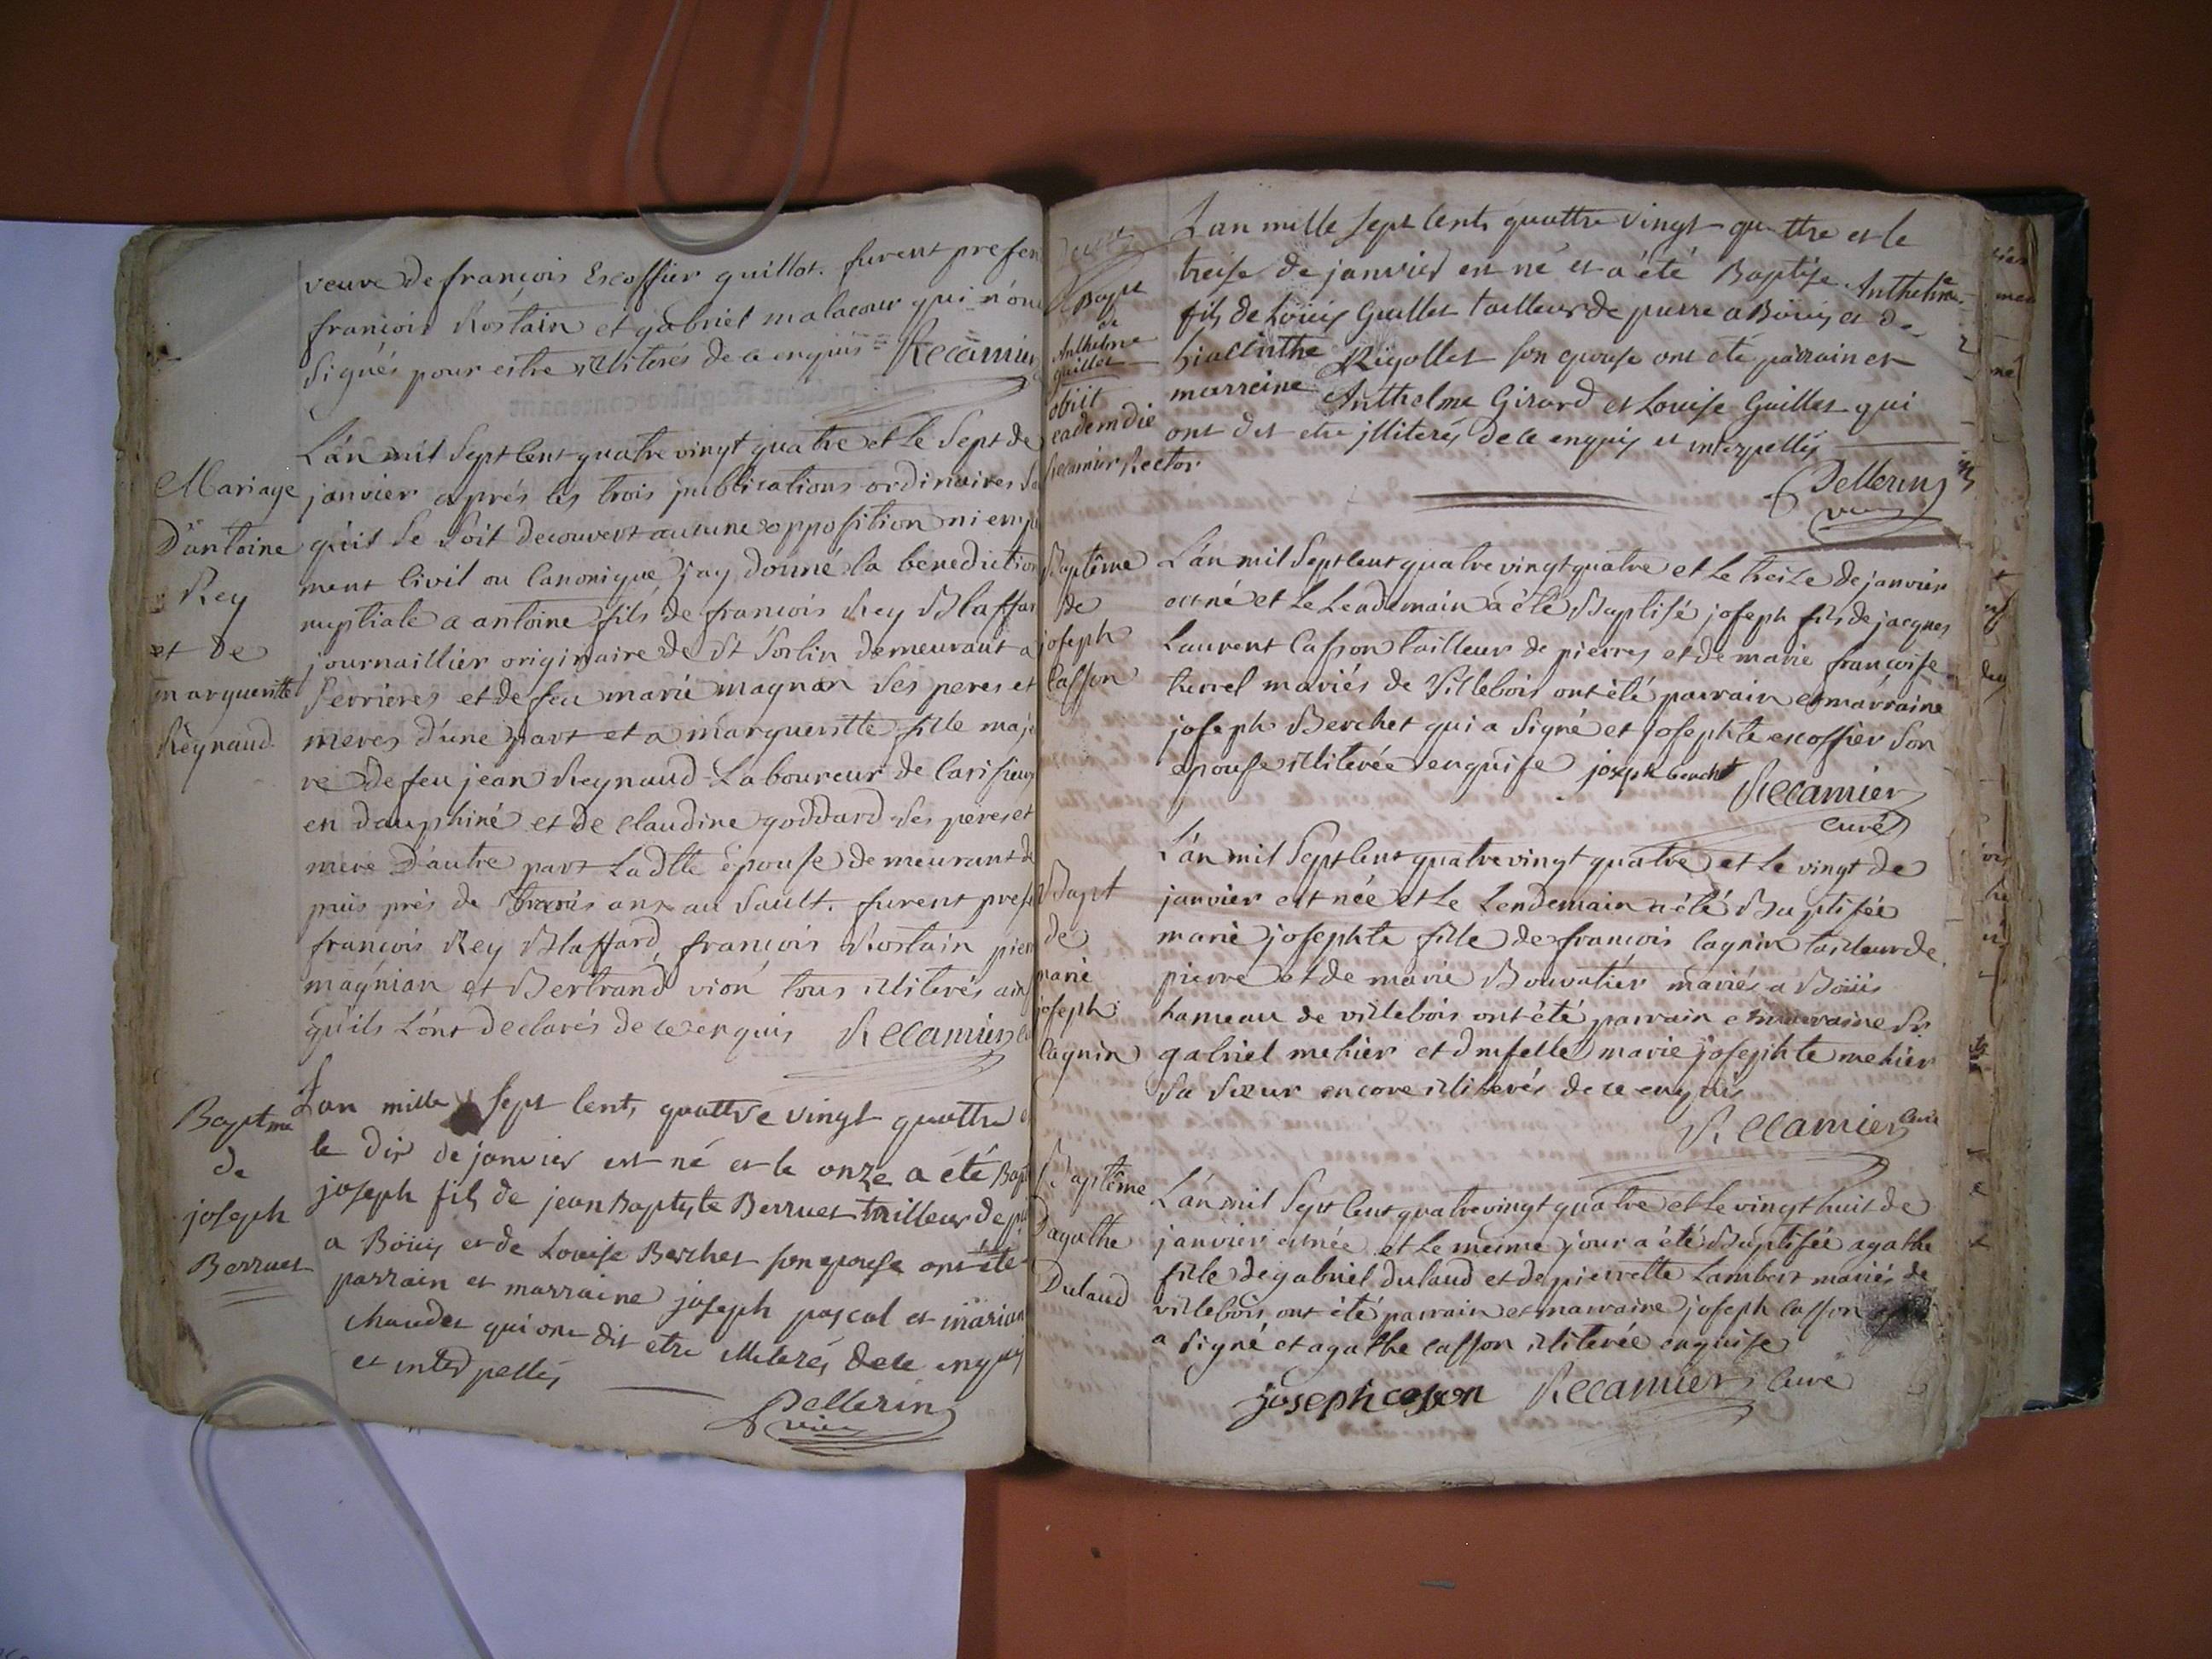 veuve de françois Escoffier guillot. furent presen
françois Rostain et gabriel malacour qui n'ont
signés pour estre illiterés de ce enquis Recamier
Mariage
D'antoine
Rey
et de
margueritte
Reynaud
L'an mil sept cent quatre vingt quatre et le sept de
janvier aprés les trois publications ordinaires sa
qu'il se soit decouvert aucune opposition ni empe
ment civil ou canonique j'ay donné la benediction
nuptiale a antoine fils de françois Rey Blaffar
journaillier originaire de St Sorlin demeurant a
Serrieres et de feu marie magnan ses peres et
meres d'une part et a margueritte fille maje
re de feu jean Reynaud Laboureur de Carisieux
en dauphiné et de Claudine goddard ses peres et
mere d'autre part Ladtte épouse demeurant de
puis prés de trois ans au Sault. furent prese
françois Rey Blaffard, françois Rostain pierr
magnian et Bertrand vion tous illiterés ain
qu'ils l'ont declarés de ce enquis Recamier
Baptme
de
joseph
Berruet
Lan mille sept cents quattre vingt quattre e
le dix de janvier est né et le onze a été Bapt
joseph fils de jean Baptyste Berruet tailleur de pi
a Böüis et de Louise Berchet son epouse ont été
parrain et marraine joseph pascal et marian
chaudet qui ont dit etre illiterés de ce enquis
et interpellés
Pellerin
vic
Bapt
de
Anthelme
guillet
obiit
eadem die
Recamier Rector
Lan mille sept cents quattre vingt quattre et le
treise de janvier est né et a été Baptise Anthelme
fils de Louis Guillet tailleur de pierre a Böuis et de
hiacinthe Rigollet son epouse ont été parrain et
marreine Anthelme Girard et Louise Guillet qui
ont dit etre illiterés de ce enquis et interpellés
Pellerin
vic
Baptême
de
joseph
Casson
L'an mil sept cent quatre vingt quatre et le treize de janvier
est né et le Lendemain a été Baptisé joseph fils de jacques
Laurent Casson tailleur de pierres et de marie françoise
hurrel mariés de Villebois ont été parrain et marraine
joseph Berchet qui a signé et josephte escoffier son
epouse illiterée enquise joseph berchet
Recamier
curé
Bapt
de
marie
joseph
Cagnin
L'an mil sept cent quatre vingt quatre et le vingt de
janvier est née et le Lendemain a été Baptisée
marie josephte fille de françois Cagnin tailleur de
pierre et de marie Bouvatier mariés a Böüis
hameau de villebois ont été parrain et marraine Sr
gabriel mehier et dmselle marie josephte mehier
sa sœur encore illiterés de ce enquis
Recamier Curé
Baptême
D'agathe
Dulaud
L'an mil sept cent quatre vingt quatre et le vingt huit de
janvier est née et le meime jour a été Baptisée agathe
fille de gabriel dulaud et de pierrette Lambert mariés de
villebois, ont été parrain et marraine joseph casson
a signé, et agathe casson illiterée enquise
joseph casson Recamier Curé